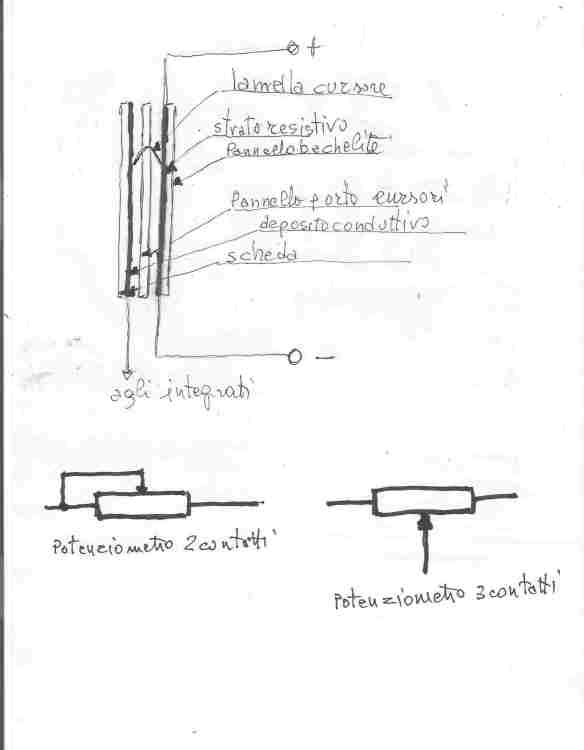 +
lamella cursore
strato resistivo
Pannello bechelite
Pannello porto cursori
deposito conduttivo
scheda
-
agli integrati
Potenziometro 2 contatti
Potenziometro 3 contatti